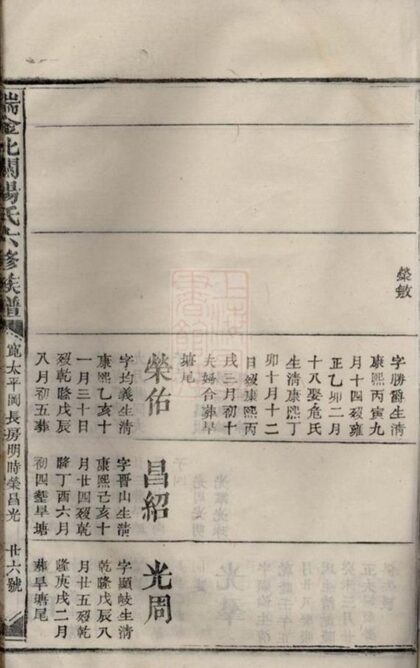 榮敏
字勝爵生淸
康熙丙寅九
月十四歿雍
正乙卯二月
十八娶危氏
生淸康熙丁
卯十月十二
日歿康熙丙
戌三月初十
夫婦合葬旱
塘尾
榮佑
字均義生淸
康熙乙亥十
一月三十日
歿乾隆戊辰
八月初五葬
昌紹
字晋山生淸
康熙己亥十
月廿四歿乾
隆丁酉六月
初四葬旱塘
光周
字顯岐生淸
乾隆戊辰八
月廿五歿乾
隆庚戌二月
葬旱塘尾
瑞金北關楊氏六修族譜
寬太平岡長房明時榮昌光
廿六號